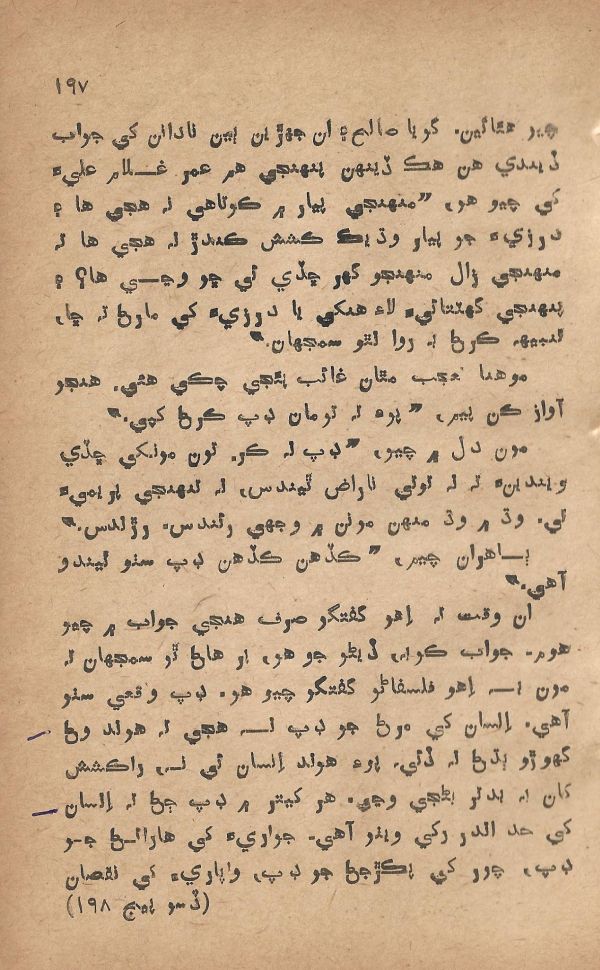 ١٩٧
چير هئائين. گويا صالح ۽ ان جهڙين ٻين نادانن کي جواب
ڏيندي هن هڪ ڏينهن پنهنجي هم عمر غلام عليءَ
کي چيو هو، ”منهنجي پيار ۾ ڪوتاهي نه هجي ها ۽
درزيءَ جو پيار وڌيڪ ڪشش ڪندڙ نه هجي ها ته
منهنجي زال منهنجو گهر ڇڏي ئي ڇو وڃي ها؟ ۽
پنهنجي گهٽتائيءَ لاءِ هنکي يا درزيءَ کي مارڻ ته ڇا،
تنبيهه ڪرڻ به روا نٿو سمجهان.“
موهنا عجب مٿان غائب ٿي چڪي هئي. هنجو
آواز ڪن پيم، ”پوءِ ته تومان ڊپ ڪرڻ کپي.“
مون دل ۾ چيو، ”ڊپ نه ڪر. تون مونکي ڇڏي
ويندينءَ ته نه توتي ناراض ٿيندس، نه تنهنجي پريميءَ
تي. وڌ ۾ وڌ منهن مونن ۾ وجهي رئندس، رڙندس.“
ڀساهوان چيم، ”ڪڏهن ڪڏهن ڊپ سٺو ٿيندو
آهي.“
ان وقت ته اهو گفتگو صرف هنجي جواب ۾ چيو
هوم. جواب ڪونه، ڏيڻو جو هو، پر هاڻ ٿو سمجهان ته
مون اهو فلسفاڻو گفتگو چيو هو. ڊپ واقعي سٺو
آهي. انسان کي مرڻ جو ڊپ نه هجي ته هوند وڻ
گهوڙو ٻڌڻ نه ڏئي. پوءِ هوند انسان ئي نه، راڪشش
کان به بدتر بڻجي وڃي. هر کيتر ۾ ڊپ ڄڻ ته انسان
کي حد اندر رکي ويٺو آهي. جواريءَ کي هارائڻ جو
ڊپ، چور کي پڪڙجڻ جو ڊپ، واپاريءَ کي نقصان
(ڏسو پيج ١٩٨)